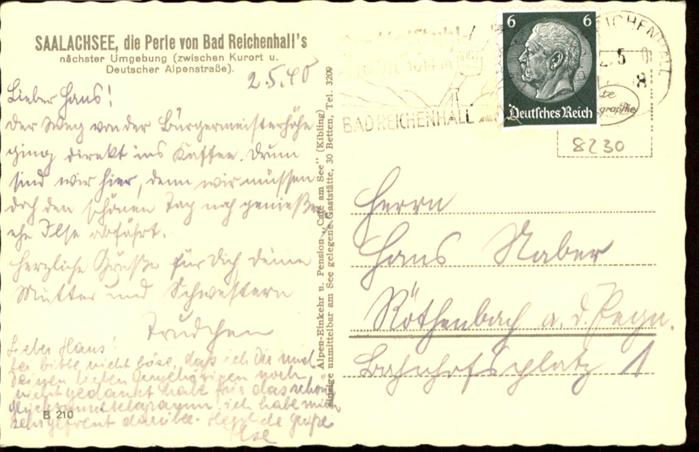 SAALACHSEE, die Perle von Bad Reichenhall's
nächster Umgebung (zwischen Kurort u.
Deutscher Alpenstraße).
2.5.40
Lieber Hans!
Der Weg von der Bürgermeisterhöhe
ging direkt ins Kaffee. Drum
sind wir hier, denn wir müssen
doch den schönen Tag noch genießen
ehe Ilse abfährt.
Herzliche Grüße für Dich Deine
Mutter und Schwestern
Trudchen
Lieber Hans!
Sei bitte nicht böse, daß ich Dir und
Deinen lieben Angehörigen noch
nicht gedankt habe für das schöne
Glückwunschtelegramm, ich habe mich
sehr gefreut darüber. Herzl. Grüße
Ilse
B 210
Alpen-Einkehr u. Pension „Café am See" (Kibling)
einzige unmittelbar am See gelegene Gaststätte, 30 Betten, Tel. 3209
6 6
Deutsches Reich
BAD REICHENHALL
REICHENHALL
2.5
8
8230
Herrn
Hans Naber
Röthenbach a. d. Pegn.
Bahnhofsplatz 1